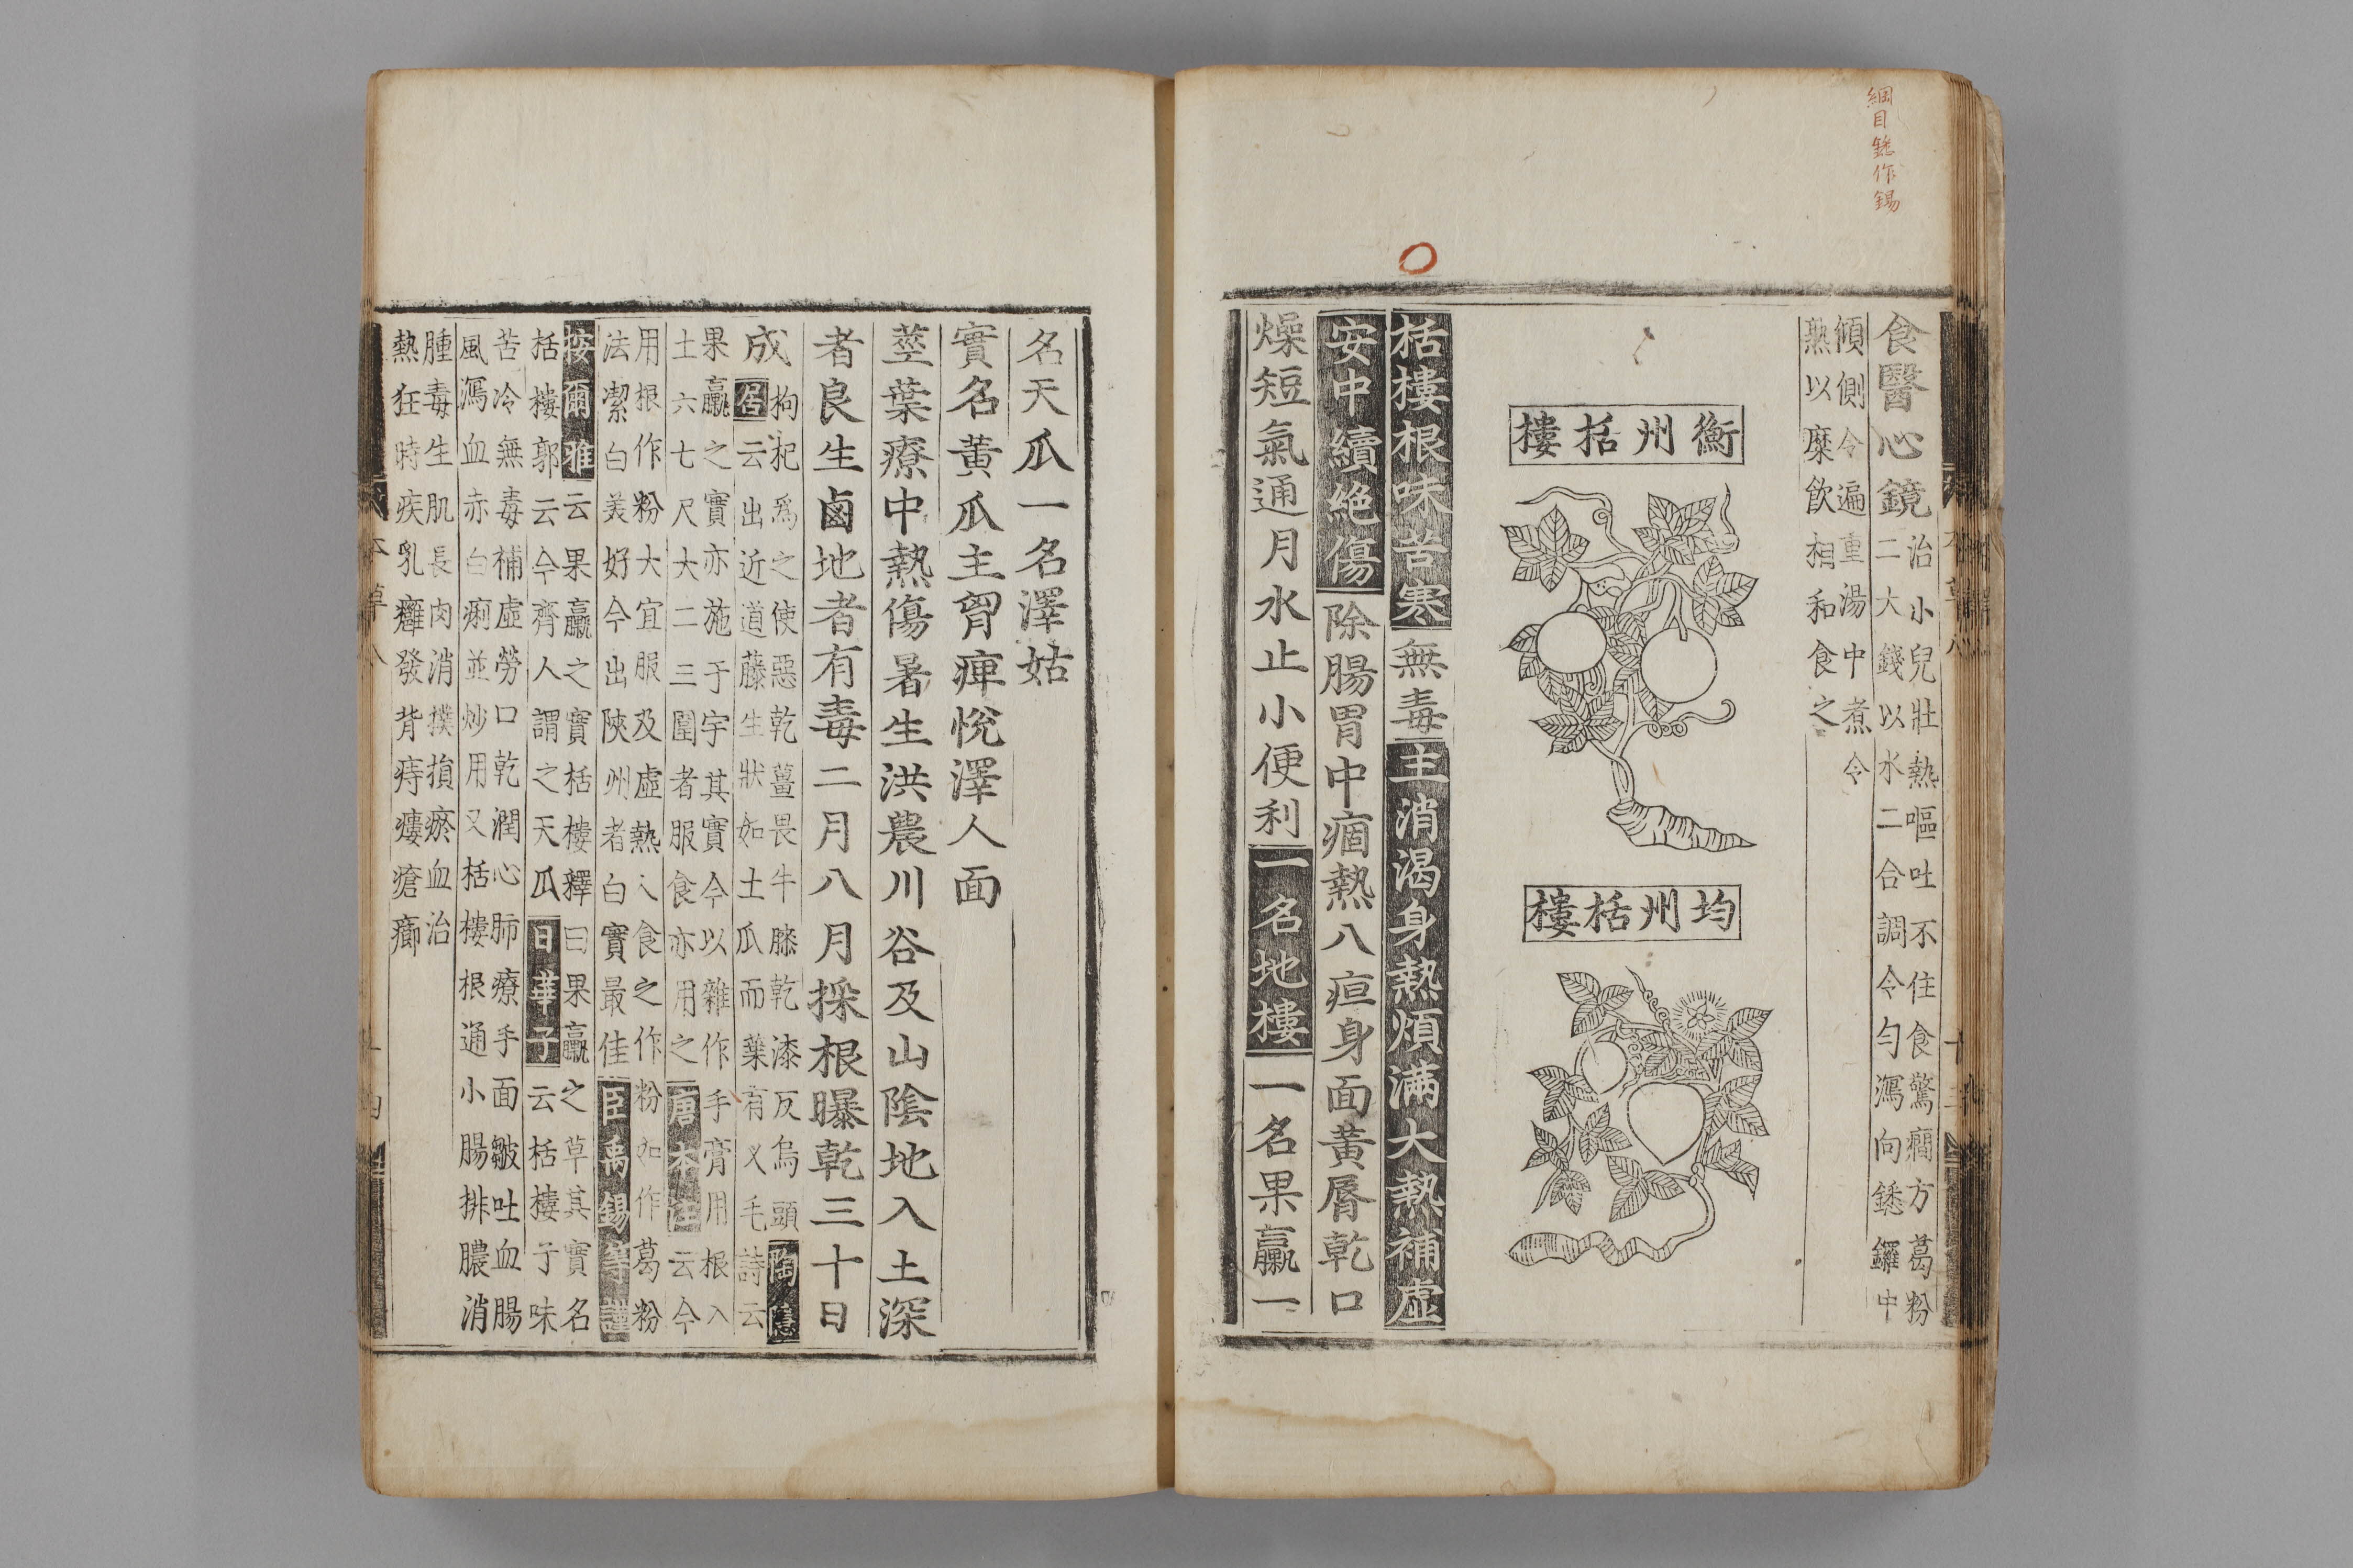 綱目鍯作錫
食醫心鏡
治小兒壯熱嘔吐不住食驚癎方葛粉
二大錢以水二合調令勻瀉向鍯鑼中
傾側令遍重湯中煮令
熟以糜飲相和食之
衡州栝樓
均州栝樓
栝樓根味苦寒無毒主消渴身熱煩滿大熱補虛
安中續絕傷除腸胃中痼熱八疸身面黃脣乾口
燥短氣通月水止小便利一名地樓一名果臝一
名天瓜一名澤姑
實名黃瓜主胷痺悅澤人面
莖葉療中熱傷暑生洪農川谷及山陰地入土深
者良生鹵地者有毒二月八月採根曝乾三十日
成
枸杞爲之使惡乾薑畏牛膝乾漆反烏頭陶隱
居云出近道藤生狀如土瓜而葉有义毛詩云
果臝之實亦施于宇其實今以雜作手膏用根入
土六七尺大二三圍者服食亦用之唐本注云今
用根作粉大宜服及虛熱人食之作粉如作葛粉
法潔白美好今出陝州者白實最佳臣禹錫等謹
按爾雅云果臝之實栝樓釋曰果臝之草其實名
栝樓郭云今齊人謂之天瓜日華子云栝樓子味
苦冷無毒補虛勞口乾潤心肺療手面皺吐血腸
風瀉血赤白痢並炒用又栝樓根通小腸排膿消
腫毒生肌長肉消撲損瘀血治
熱狂時疾乳癰發背痔瘻瘡癤